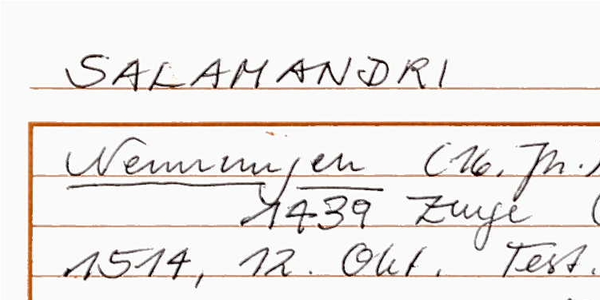 SALAMANDRI
Nenningen (16. Jh.
1439 Zeuge (
1514, 12. Okt. Test.